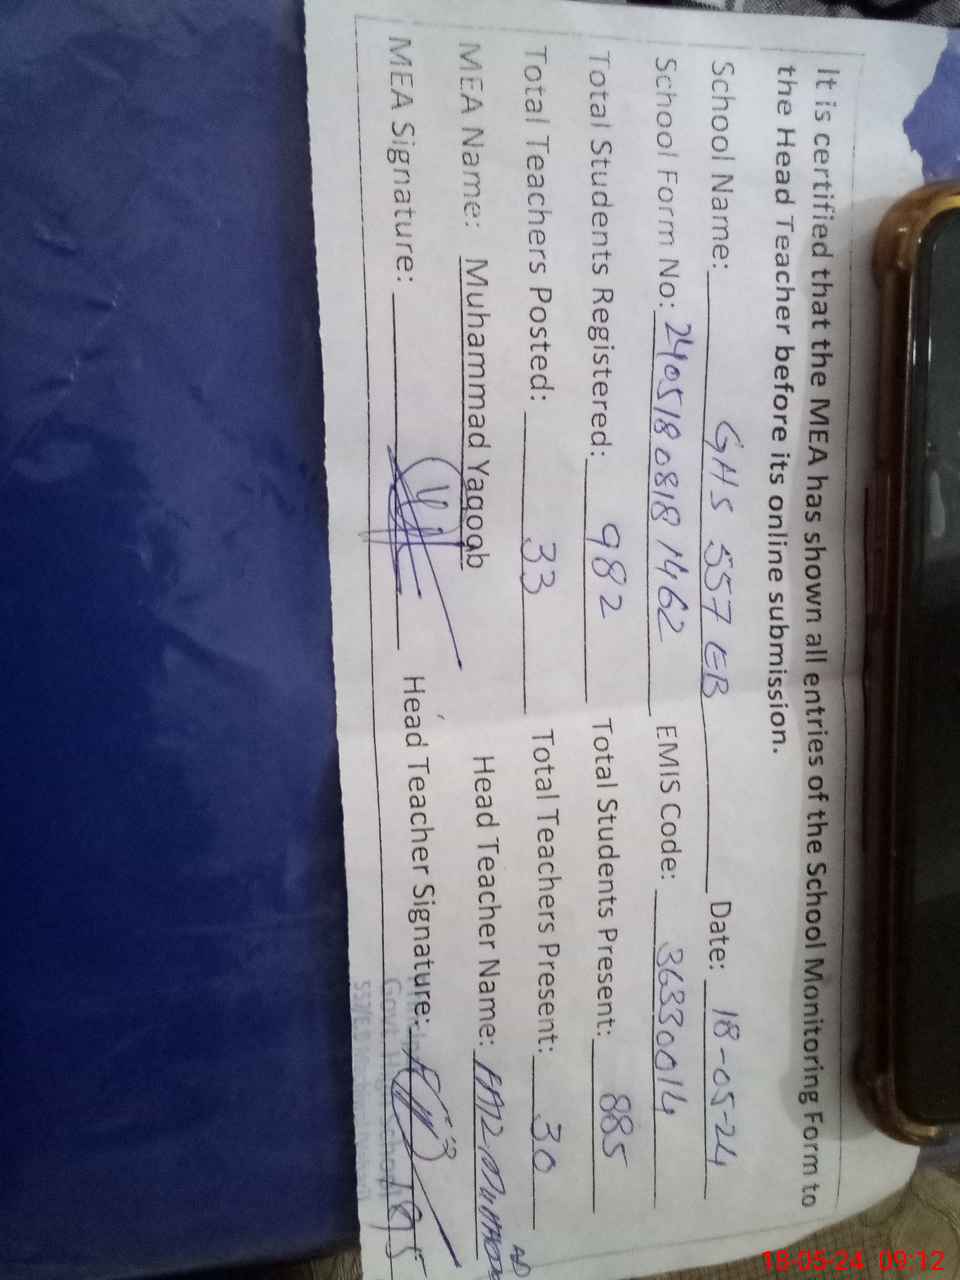 It is certified that the MEA has shown all entries of the School Monitoring Form to
the Head Teacher before its online submission.
School Name: GHS 557 EB Date: 18-05-24
School Form No: 240518 0818 1462 EMIS Code: 36330014
Total Students Registered: 982 Total Students Present: 885
Total Teachers Posted: 33 Total Teachers Present: 30
MEA Name: Muhammad Yaqoob Head Teacher Name:
MEA Signature: Head Teacher Signature:
Govt.
18-05-24 09:12